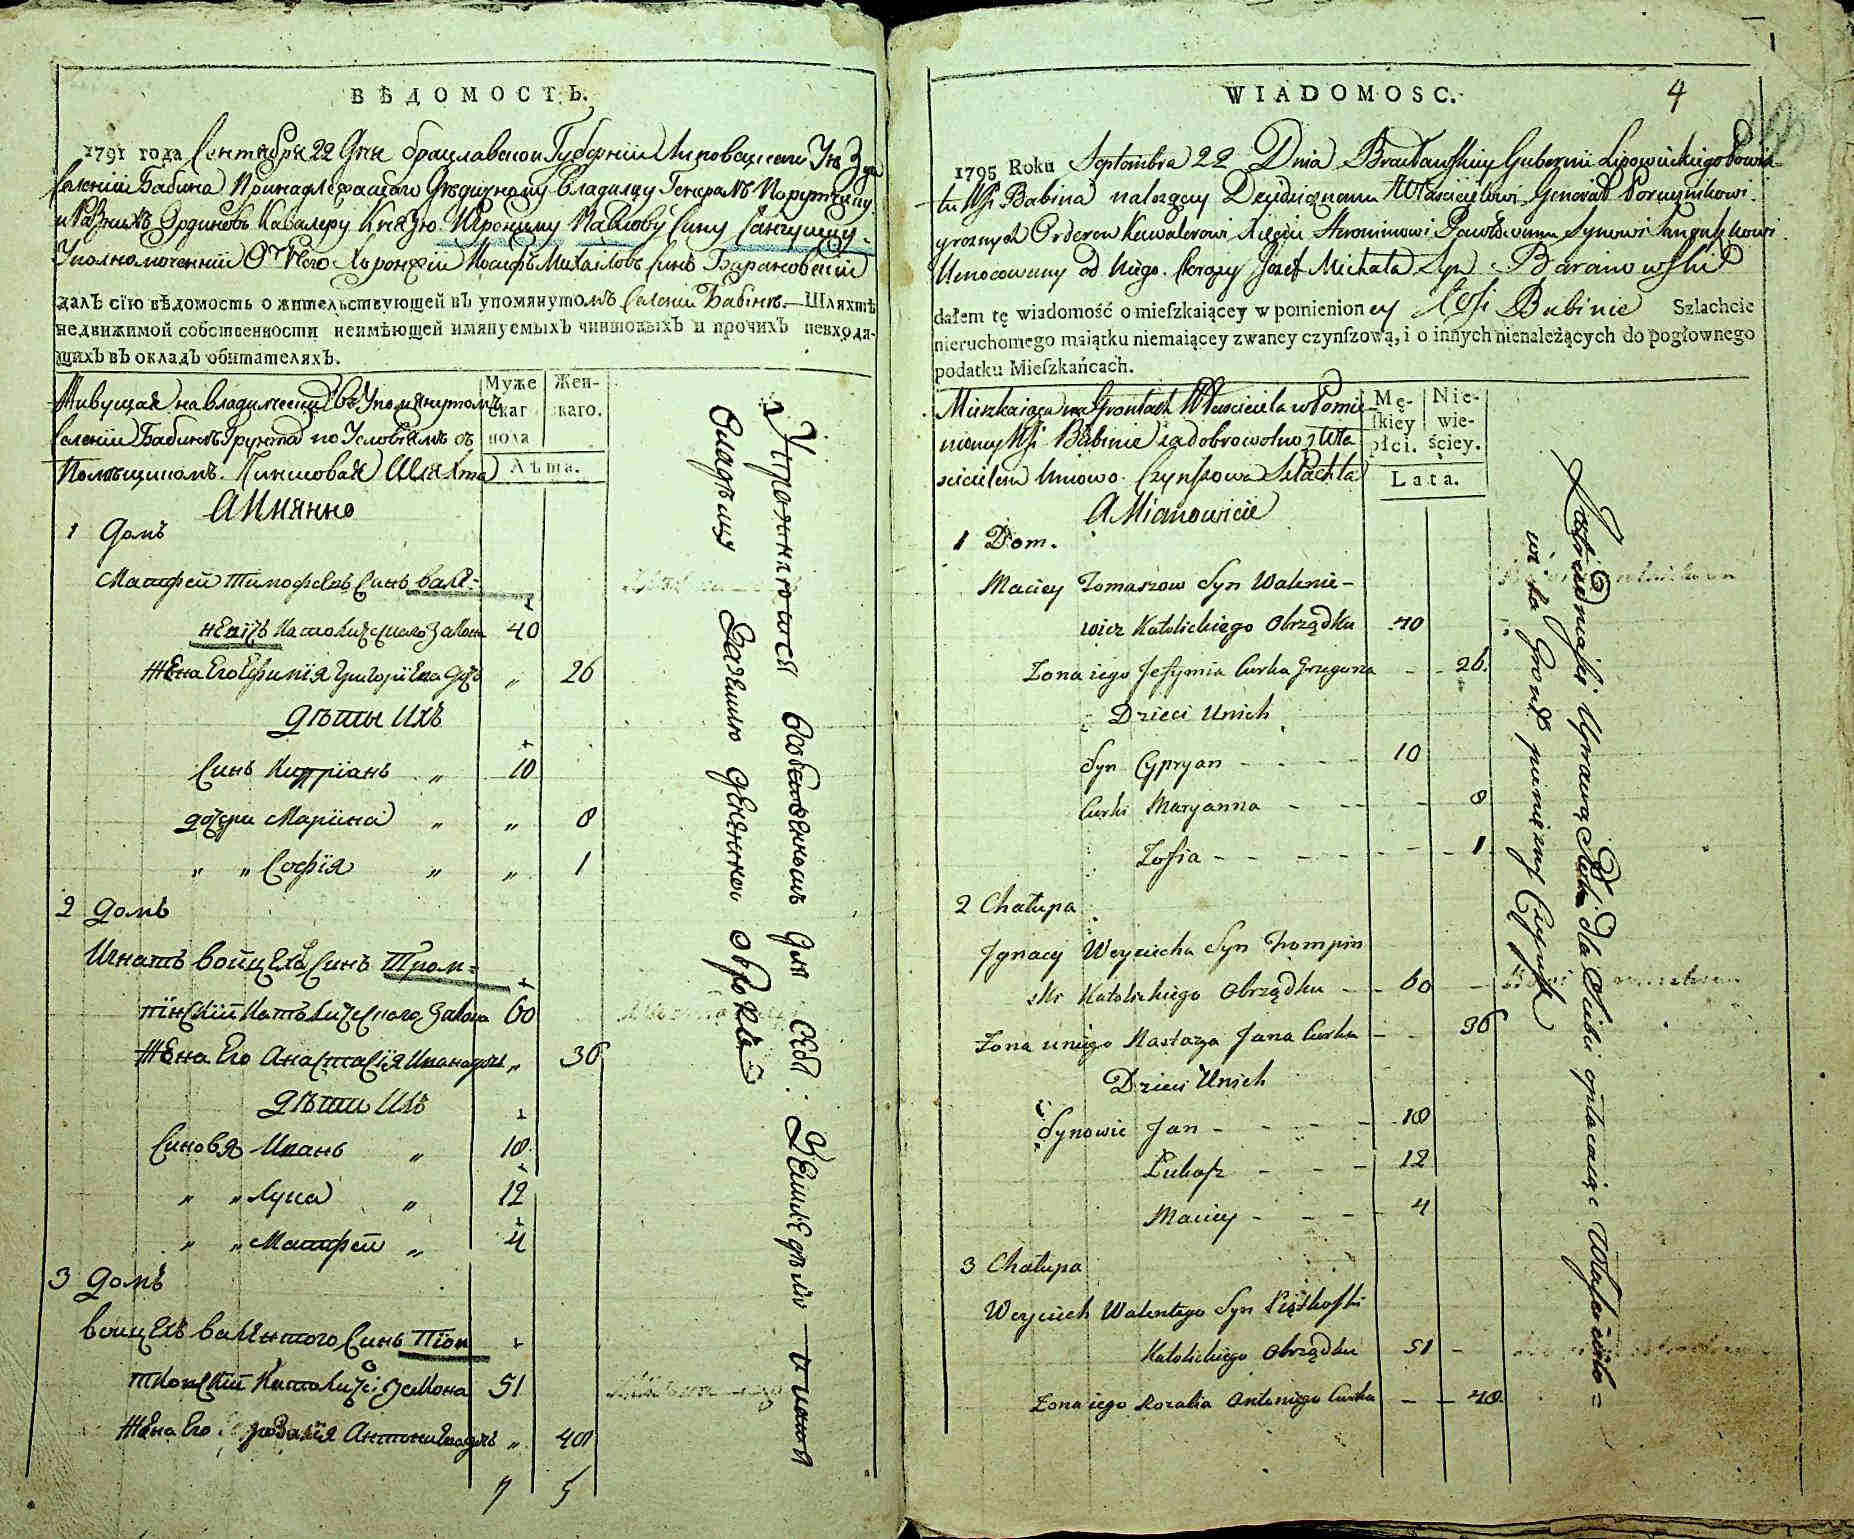 ВѢДОМОСТЬ.
1791 года Сентября 22 Дня Брацлавской Губернии Липовецкого Уѣзда
Селенїи Бабина Принадлежащого Дѣдичному Владелцу Генералъ Порутчику
и Разнихъ Орденовъ Кавалеру Князю Иерониму Павлову Сину Сангушку
Уполномоченнїй Отъ Него Хоронжїй Иосифъ Михайловъ Синъ Барановскїй
далъ сїю вѣдомость о жительствующей въ упомянутомъ Селенїи Бабинѣ. Шляхтѣ
недвижимой собственности неимѣющей имянуемыхъ чиншовыхъ и прочихъ невходя-
щихъ въ окладъ обитателяхъ.
Живущая на Владимческихъ въ Упомянутомъ
Селенїи Бабинѣ Грунта по Условїямъ съ
Помѣщикомъ. Чиншовая Шляхта
А Имянно
Муже
скаг
пола
Жен-
скаго.
Лѣта.
1 Домъ
Матфей Тимофеевъ Синъ Вале-
невїчъ Католическаго Закона 40
Жена Его Ефимїя Григорїева Дочь „ 26
Дѣты Ихъ
Синъ Кипрїанъ „ 10
дочери Марїина „ „ 8
„ „ Софїя „ „ 1
2 Домъ
Игнатъ Войцеха Синъ Тром-
пїнскїй Католического Закона 60
Жена Его Анастасїя Ивана дочь „ 36
Дѣти Ихъ
Синовя Иванъ „ 18
„ „ Лука „ 12
„ „ Матфей „ 4
3 Домъ
Войцехъ Валентого Синъ Пїон
тковскїй Католичес Закона 51
Жена Его Розалїя Антонїева дочь „ 40
7 5
Упражняются особенностью для себя.
владѣлцу Землю денежной оброкъ
WIADOMOSC. 4
1795 Roku Septembra 22 Dnia Bracławskiey Gubernii Lipowieckiego Powia-
tu Wsi Babina należący Dziedzicznemu Właścicielowi Generał Porucznikowi
groznych Orderow Kawalerowi Xięciu Heronimowi Pawłowemu Synowi Sanguszkowi
Umocowany od Niego Chorąży Jozef Michała Syn Baranowski
dałem tę wiadomość o mieſzkaiącey w pomienion ey Wsi Babinie Szlachcie
nieruchomego maiątku niemaiącey zwaney czynſzową, i o innych nienależących do pogłownego
podatku Mieſzkańcach.
Mieszkaiąca na Grontach Właściciela w Pomie-
nioney Wsi Babinie za dobrowolną z Wła
scicielem Umową Czynſzowa Szlachta
A Mianowicie
Mę-
ſkiey
płci.
Nie-
wie-
ściey.
Lata.
1 Dom.
Maciey Tomaszow Syn Walenie-
wicz Katolickiego Obrządku 40
Zona iego Jefymia Curka Grzegorza - - 26.
Dzieci Unich
Syn Cypryan - - - - 10
Curki Maryanna - - - - 8
Zofia - - - - - - 1
2 Chałupa
Ignacy Weyciecha Syn Trompin
ski Katolickiego Obrządku - - 60
Zona uniego Nastazya Jana Curka - - 36
Dzieci Unich
Synowie Jan - - - - 18
Łukasz - - - 12
Maciey - - - - 4
3 Chałupa
Weyciech Walentego Syn Piątkoſki
Katolickiego Obrządku 51 -
Zona iego Rozalia Antoniego Curka - - 40
Zatrudniaią Uprawą Roli dla Siebie opłacaiąc Właścicielo =
wi za Gront pieniężny Czynſz